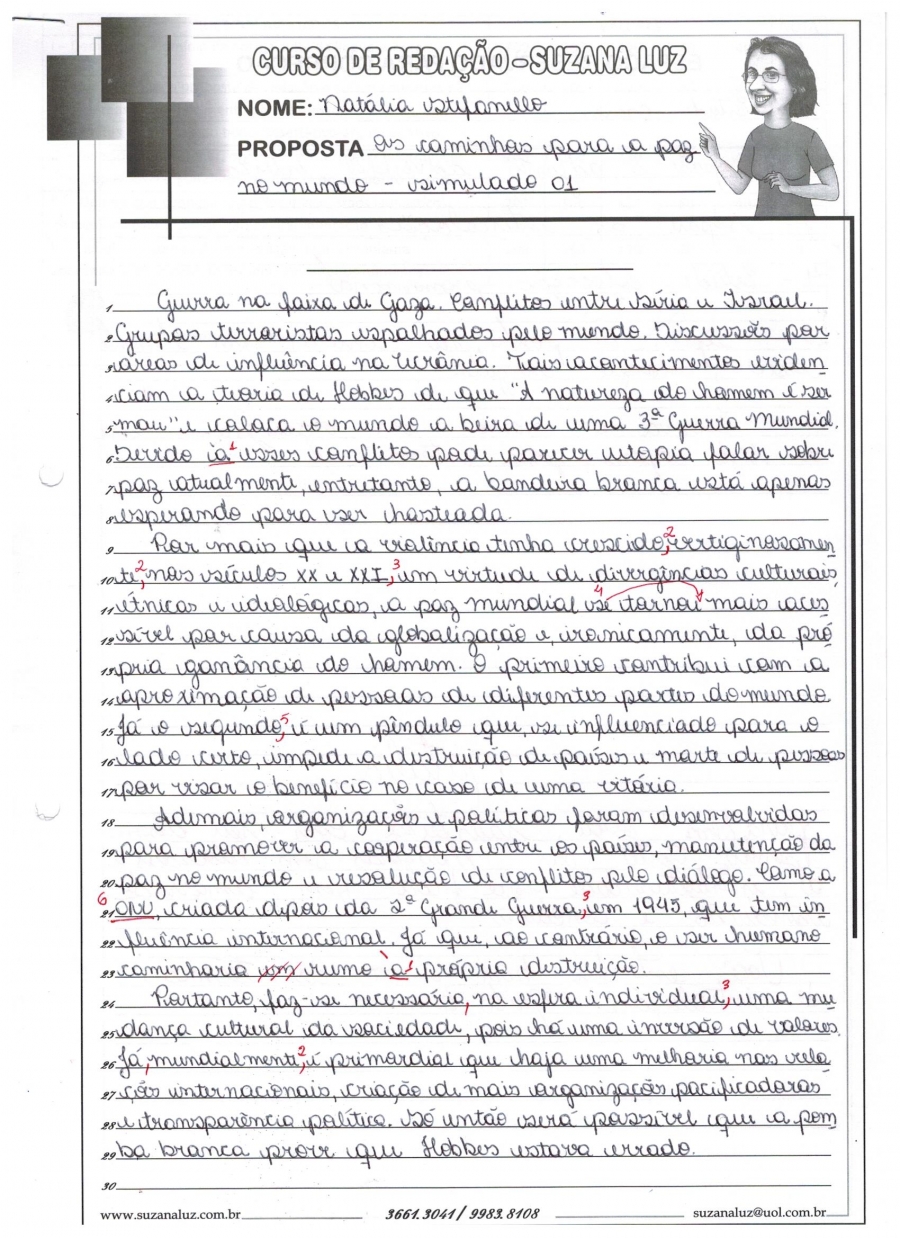 CURSO DE REDAÇÃO - SUZANA LUZ
NOME: Natália Stifanillo
PROPOSTA Os caminhos para a paz
no mundo - simulado 01
1 Guerra na faixa de Gaza. Conflitos entre Síria e Israel.
2 Grupos terroristas espalhados pelo mundo. Discussões por
3 áreas de influência na Ucrânia. Tais acontecimentos eviden
4 ciam a teoria de Hobbes de que "A natureza do homem é ser
5 mau" e coloca o mundo a beira de uma 3ª Guerra Mundial.
6 Devido à 1 esses conflitos pode parecer utopia falar sobre
7 paz atualmente, entretanto, a bandeira branca está apenas
8 esperando para ser hasteada.
9 Por mais que a violência tenha crescido,2 vertiginosamen
10 te,2 nos séculos XX e XXI,3 em virtude de divergências culturais,
11 étnicas e ideológicas, a paz mundial 4 se tornou mais aces
12 sível por causa da globalização e, ironicamente, da pró
13 pria ganância do homem. O primeiro contribui com a
14 aproximação de pessoas de diferentes partes do mundo.
15 Já o segundo,5 é um pêndulo que, se influenciado para o
16 lado certo, impede a destruição de países e morte de pessoas
17 por visar o benefício no caso de uma vitória.
18 Ademais, organizações e políticas foram desenvolvidas
19 para promover a cooperação entre os países, manutenção da
20 paz no mundo e resolução de conflitos pelo diálogo. Como a
6
21 ONU, criada depois da 2ª Grande Guerra,3 em 1945, que tem in
22 fluência internacional. Já que, ao contrário, o ser humano
23 caminharia em rumo à 1 própria destruição.
24 Portanto, faz-se necessário, na esfera individual,3 uma mu
25 dança cultural da sociedade, pois há uma inversão de valores.
26 Já, mundialmente,2 é primordial que haja uma melhoria nas rela
27 ções internacionais, criação de mais organizações pacificadoras
28 e transparência política. Só então será possível que a pom
29 ba branca prove que Hobbes estava errado.
30
www.suzanaluz.com.br 3661.3041 / 9983.8108 suzanaluz@uol.com.br